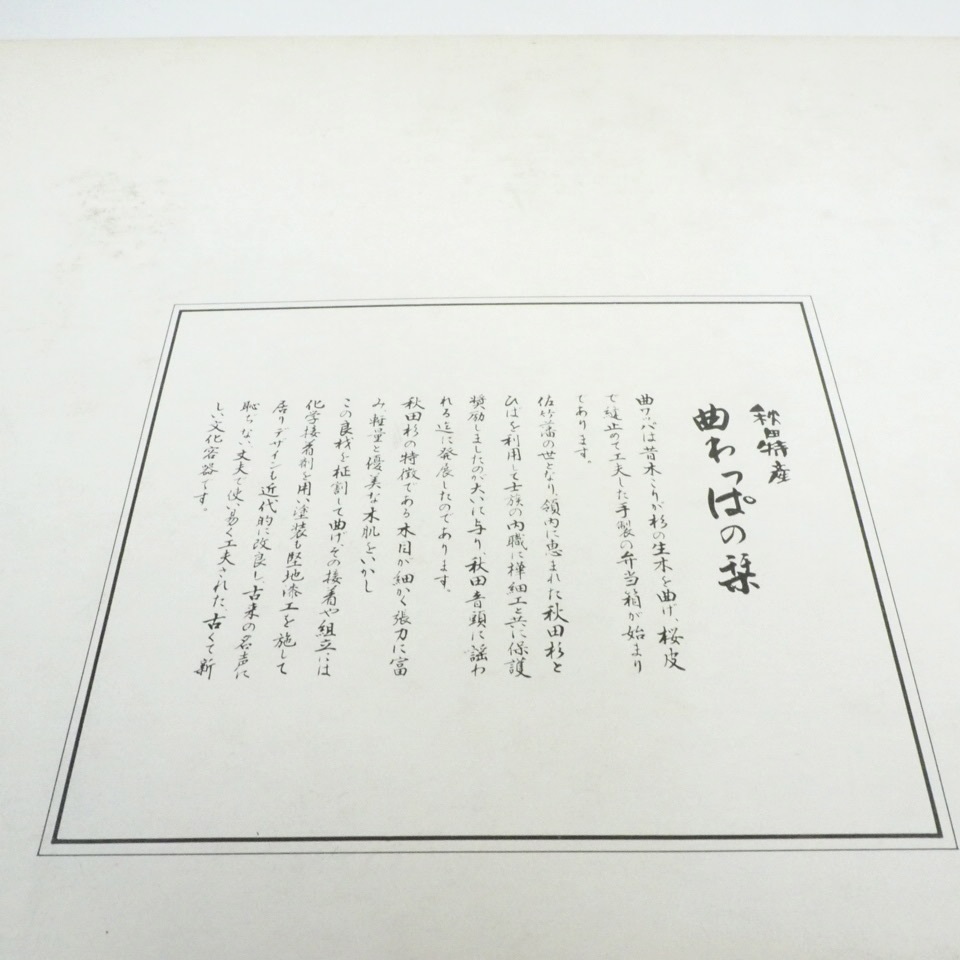 秋田特産
曲わっぱの栞
曲ワッパは昔木こりが杉の生木を曲げ、桜皮
で縫止めて工夫した手製の弁当箱が始まり
であります。
佐竹藩の世となり、領内に恵まれた秋田杉と
ひばを利用して士族の内職に樺細工と共に保護
奨励しましたのが大いに与り、秋田音頭に謡わ
れる迄に発展したのであります。
秋田杉の特徴である木目が細かく張力に富
み、軽量と優美な木肌をいかし
この良材を柾割して曲げその接着や組立には
化学接着剤を用い塗装も堅地漆工を施して
居りデザインも近代的に改良し、古来の名声に
恥ぢない丈夫で使い易く工夫された、古くて新
しい文化容器です。